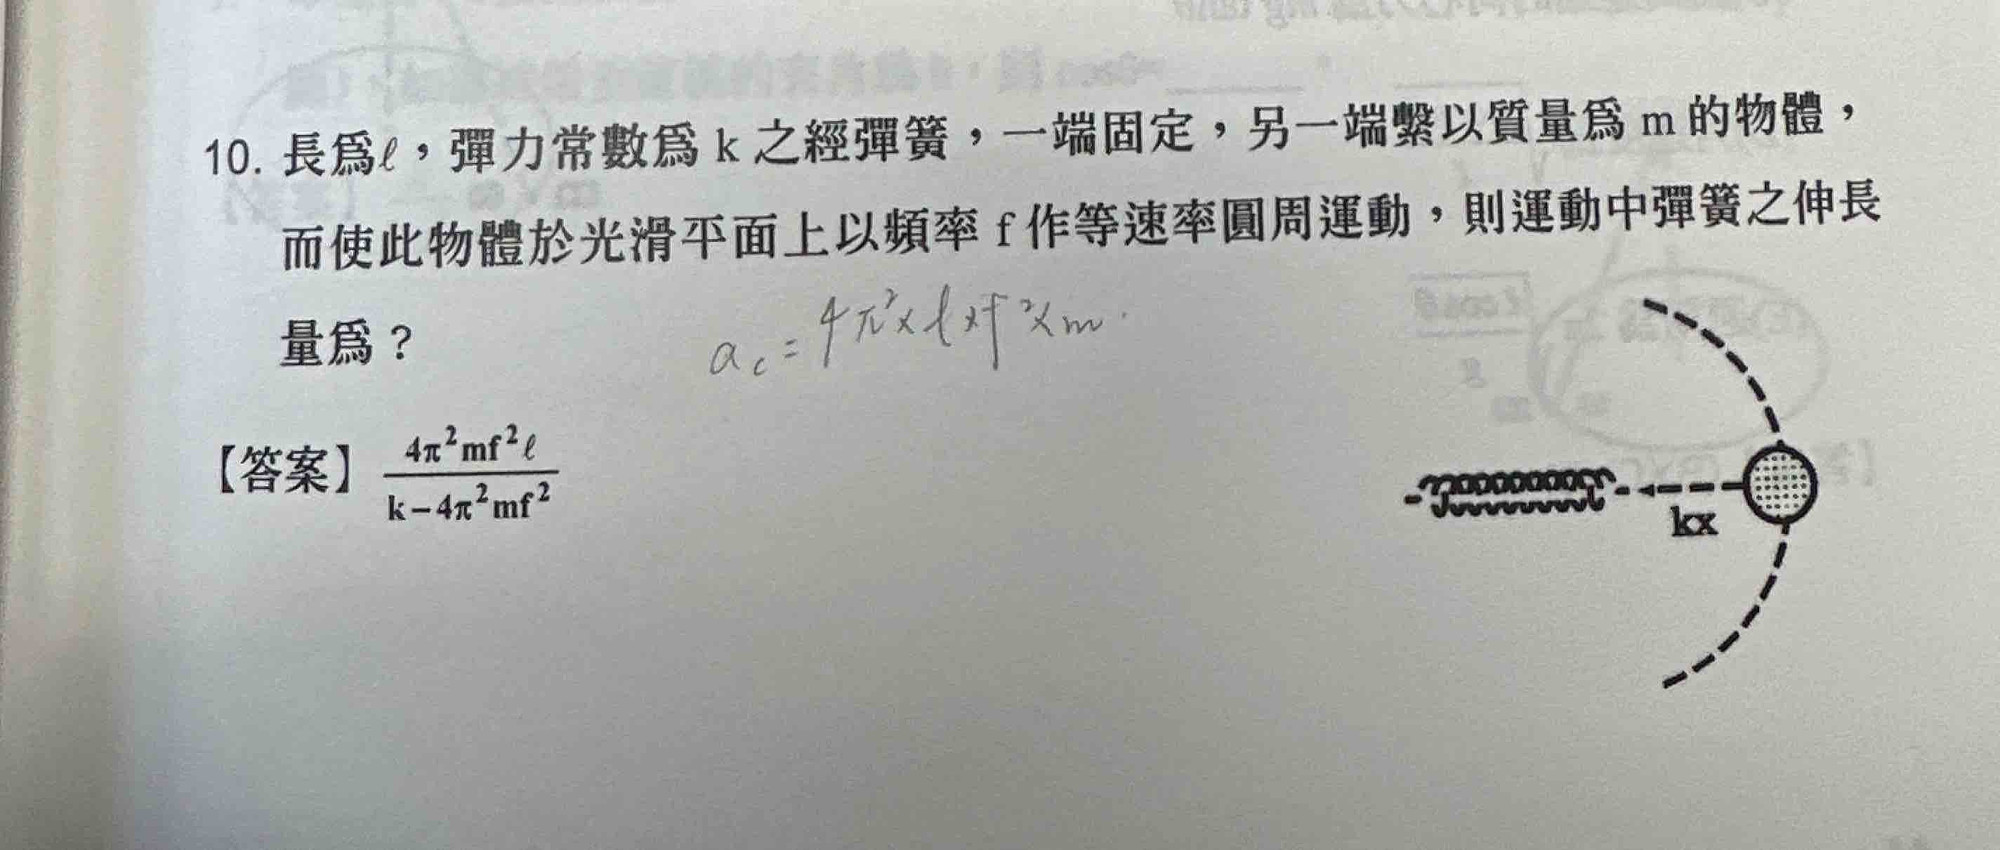 10. 長爲ℓ，彈力常數爲 k 之經彈簧，一端固定，另一端繫以質量爲 m 的物體，
而使此物體於光滑平面上以頻率 f 作等速率圓周運動，則運動中彈簧之伸長
量爲？
a_c = 4π²×ℓ×f²×m
【答案】 4π²mf²ℓ / k−4π²mf²
kx